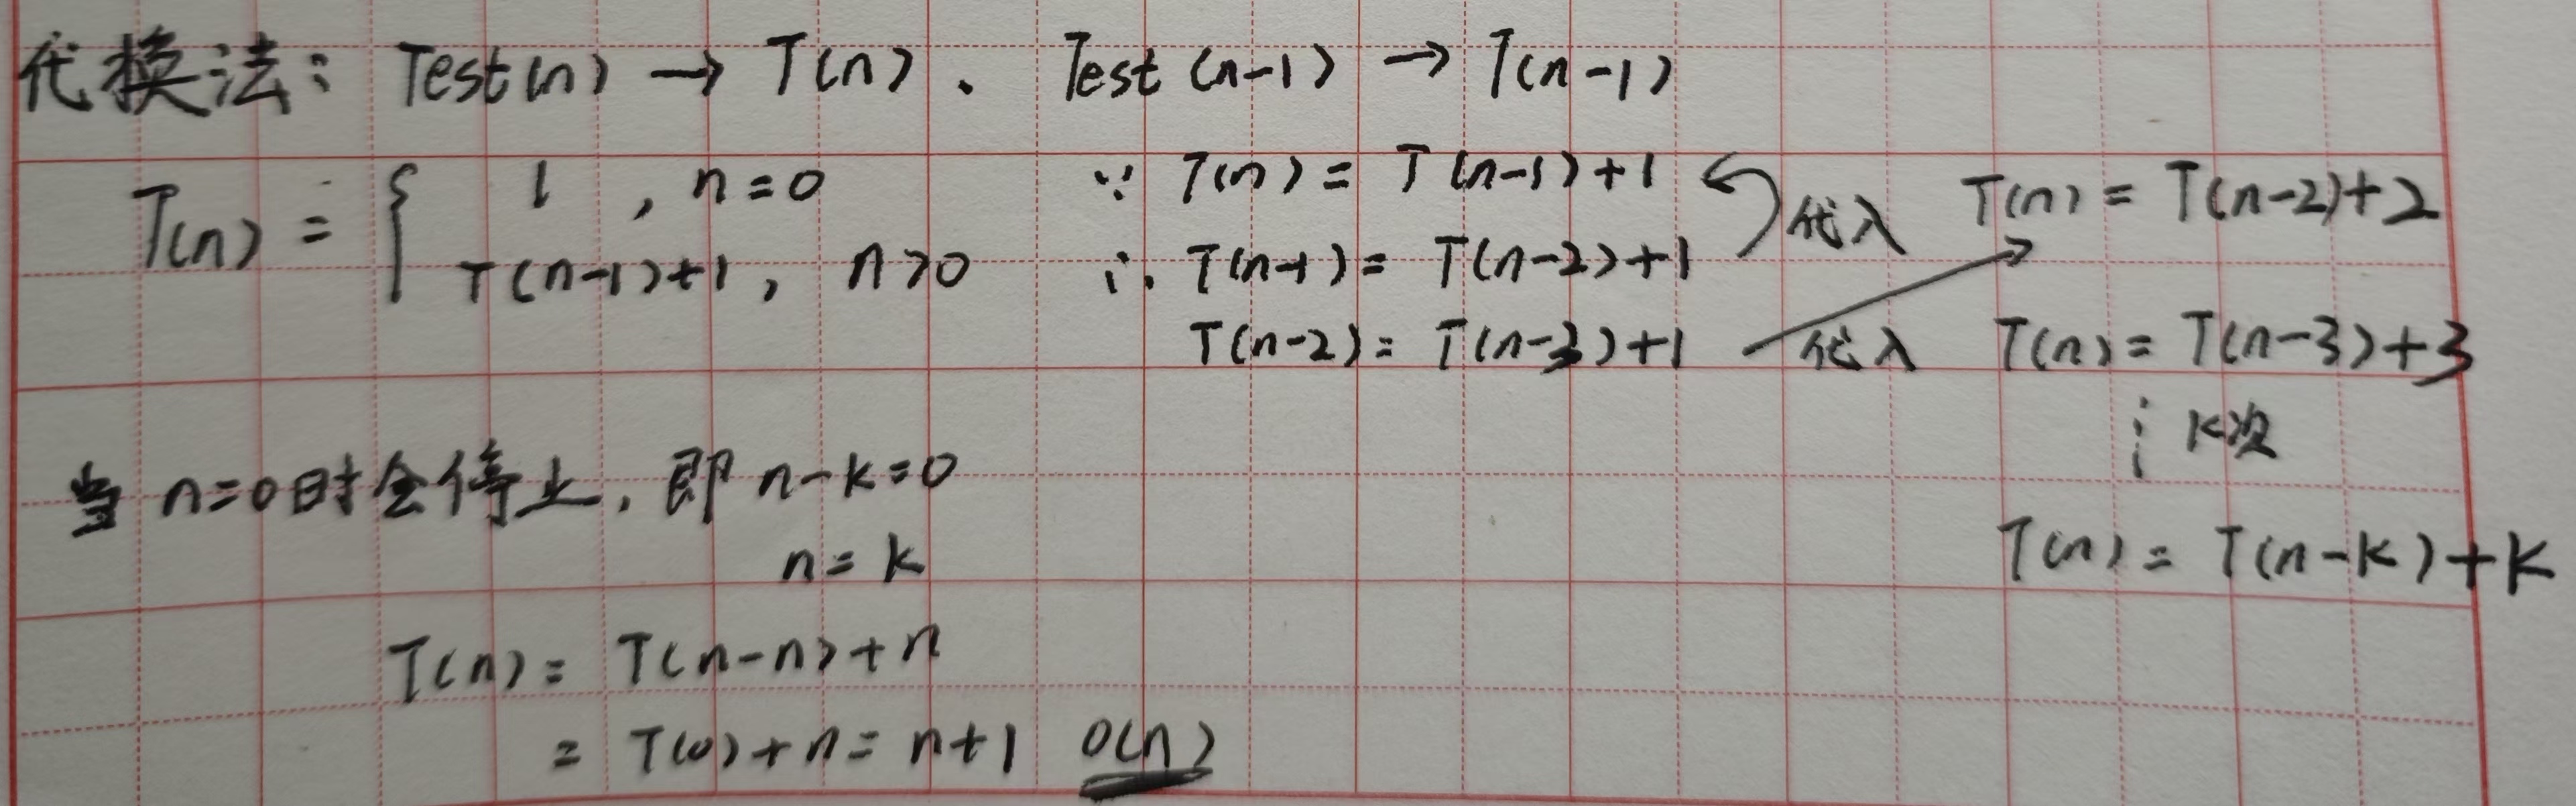 代换法: Test(n) → T(n)、 Test(n-1) → T(n-1)
T(n) = { 1 , n=0
T(n-1)+1, n>0
∵ T(n) = T(n-1)+1
∴ T(n-1) = T(n-2)+1
代入 T(n) = T(n-2)+2
T(n-2) = T(n-3)+1
代入 T(n) = T(n-3)+3
⋮ K次
T(n) = T(n-K)+K
当 n=0时会停止, 即 n-k=0
n=k
T(n) = T(n-n)+n
= T(0)+n = n+1 O(n)